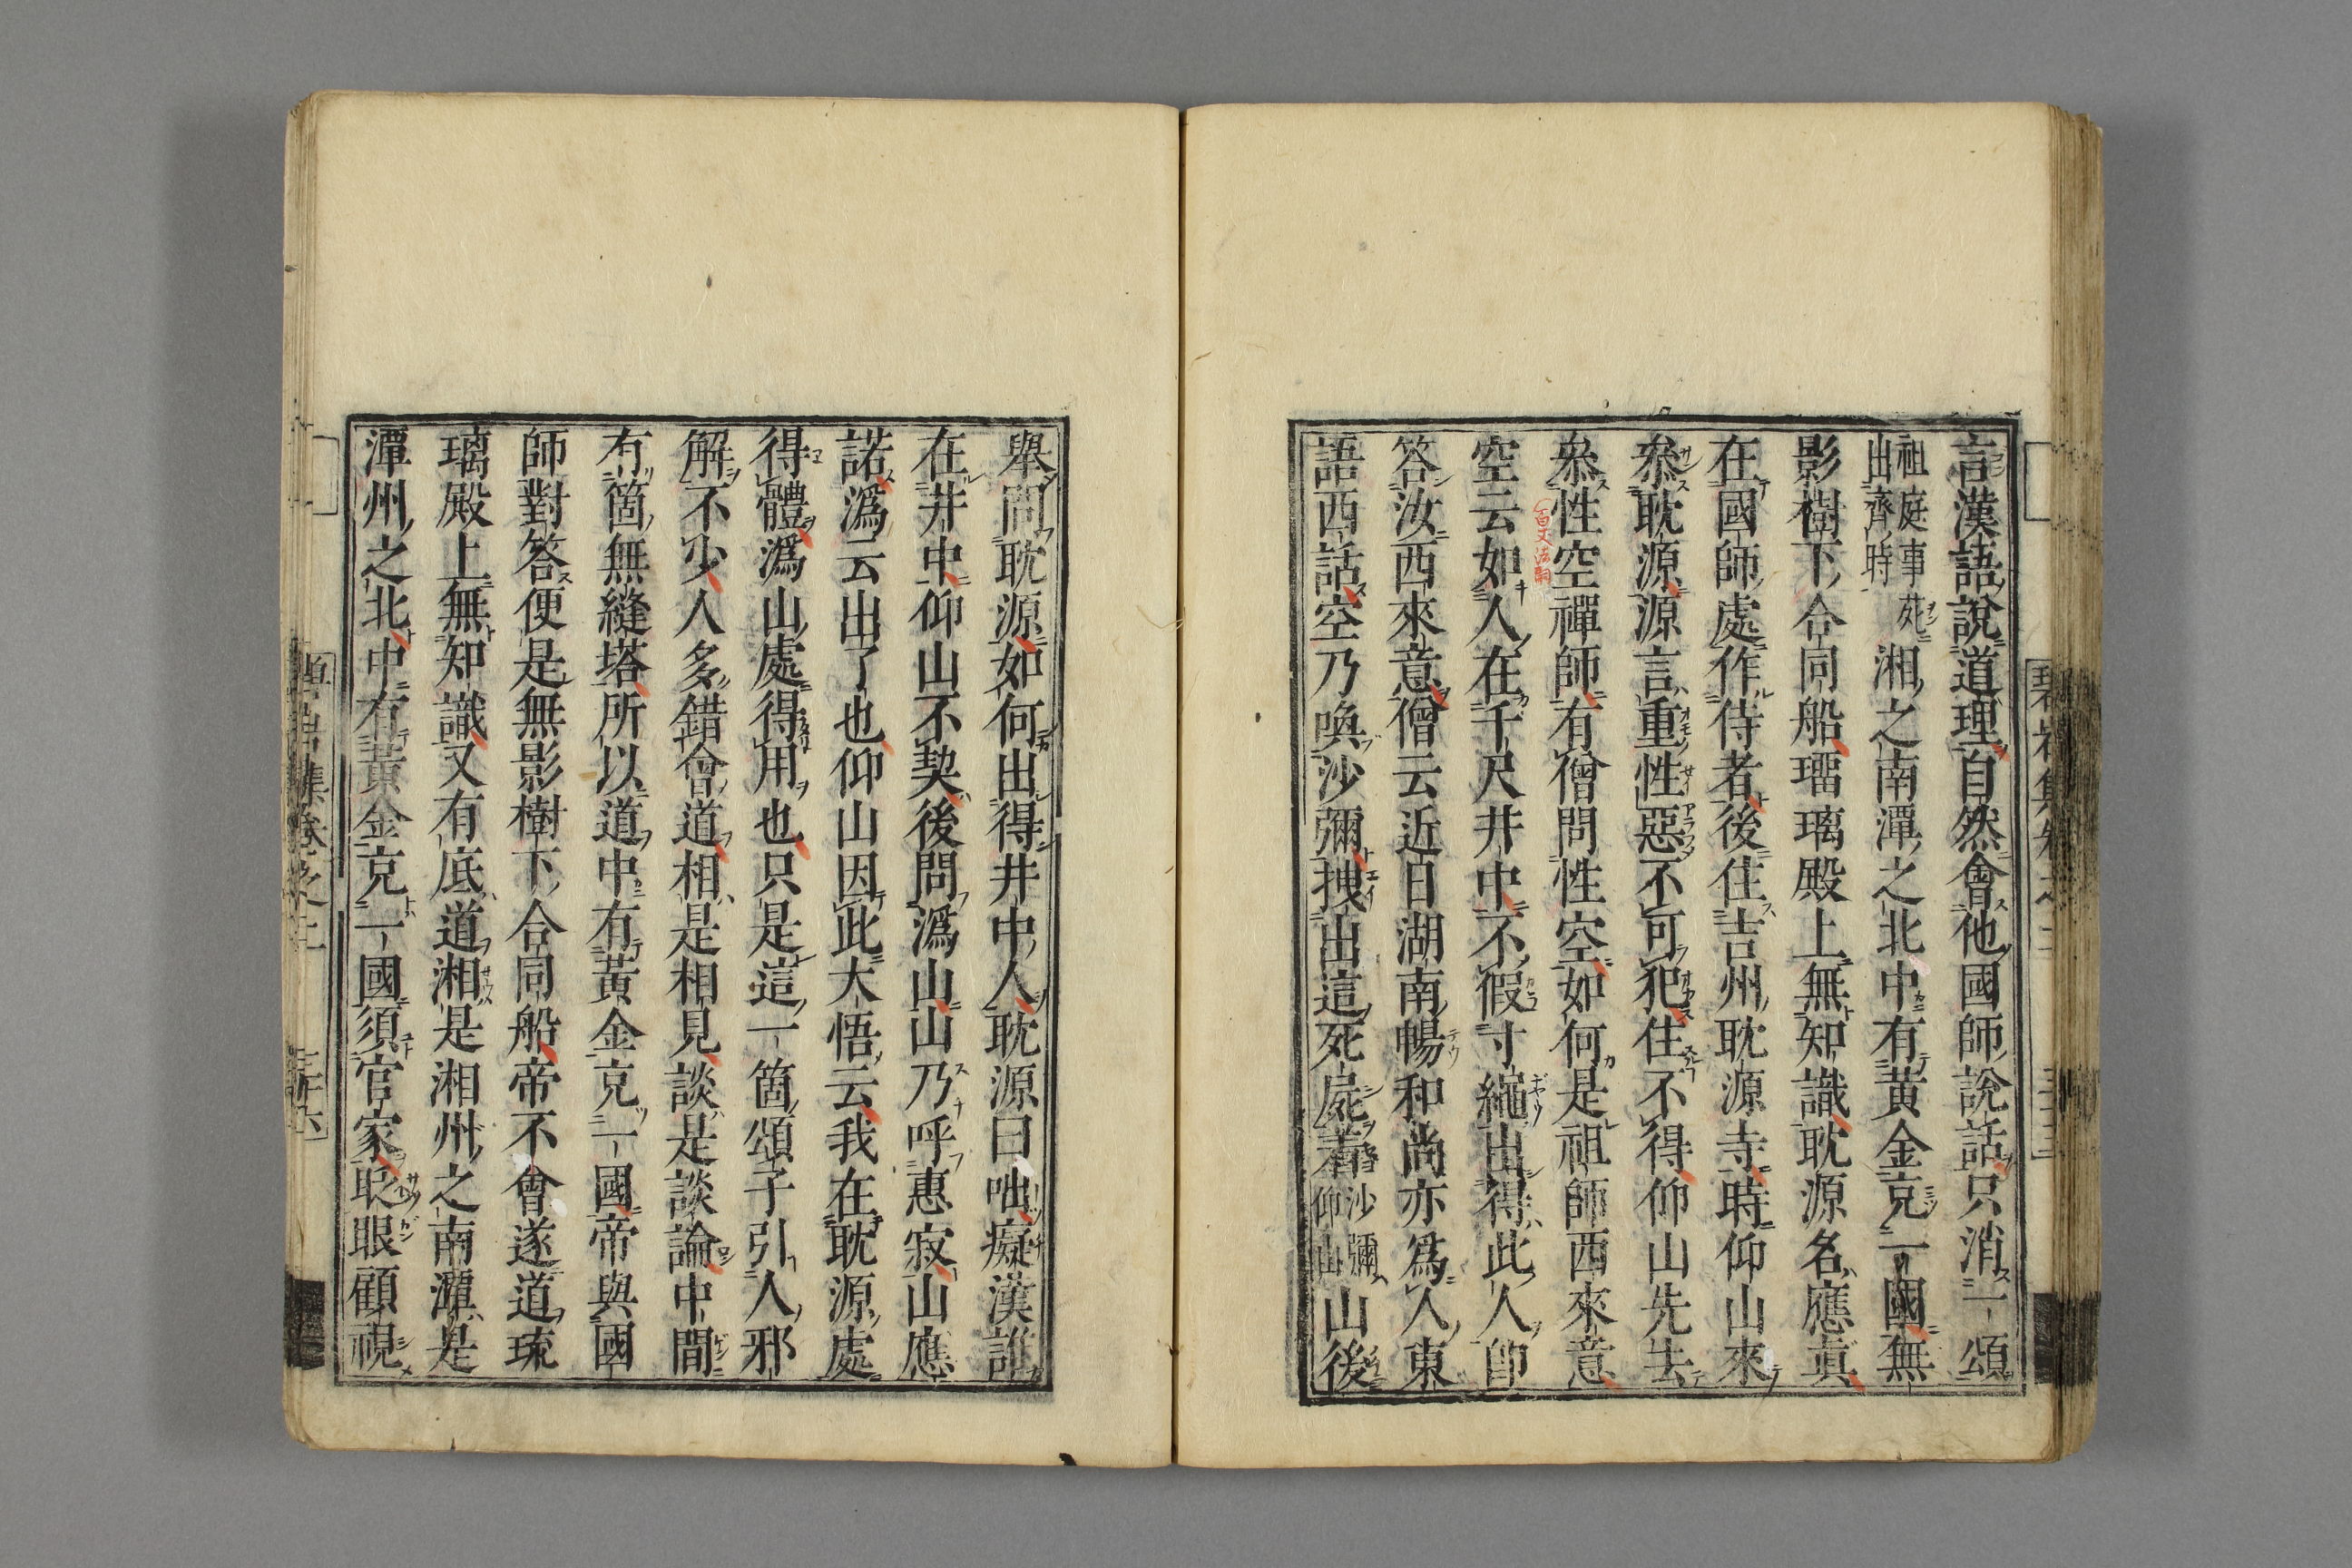 言漢語說道理自然會他國師說話只消一頌
祖庭事苑
出齊時
湘之南潭之北中有黃金充一國無
影樹下合同船瑠璃殿上無知識耽源名應真
在國師處作侍者後住吉州耽源寺時仰山來
叅耽源源言重性惡不可犯住不得仰山先去
叅性空禪師有僧問性空如何是祖師西來意
空云如人在千尺井中不假寸繩出得此人卽
答汝西來意僧云近日湖南暢和尚亦爲人東
語西話空乃喚沙彌拽出這死屍着
沙彌
仰山
山後
舉問耽源如何出得井中人耽源曰咄癡漢誰
在井中仰山不契後問潙山山乃呼惠寂山應
諾潙云出了也仰山因此大悟云我在耽源處
得體潙山處得用也只是這一箇頌子引人邪
解不少人多錯會道相是相見談是談論中間
有箇無縫塔所以道中有黃金充一國帝與國
師對答便是無影樹下合同船帝不會遂道琉
璃殿上無知識又有底道湘是湘州之南潭是
潭州之北中有黃金充一國須官家眨眼顧視